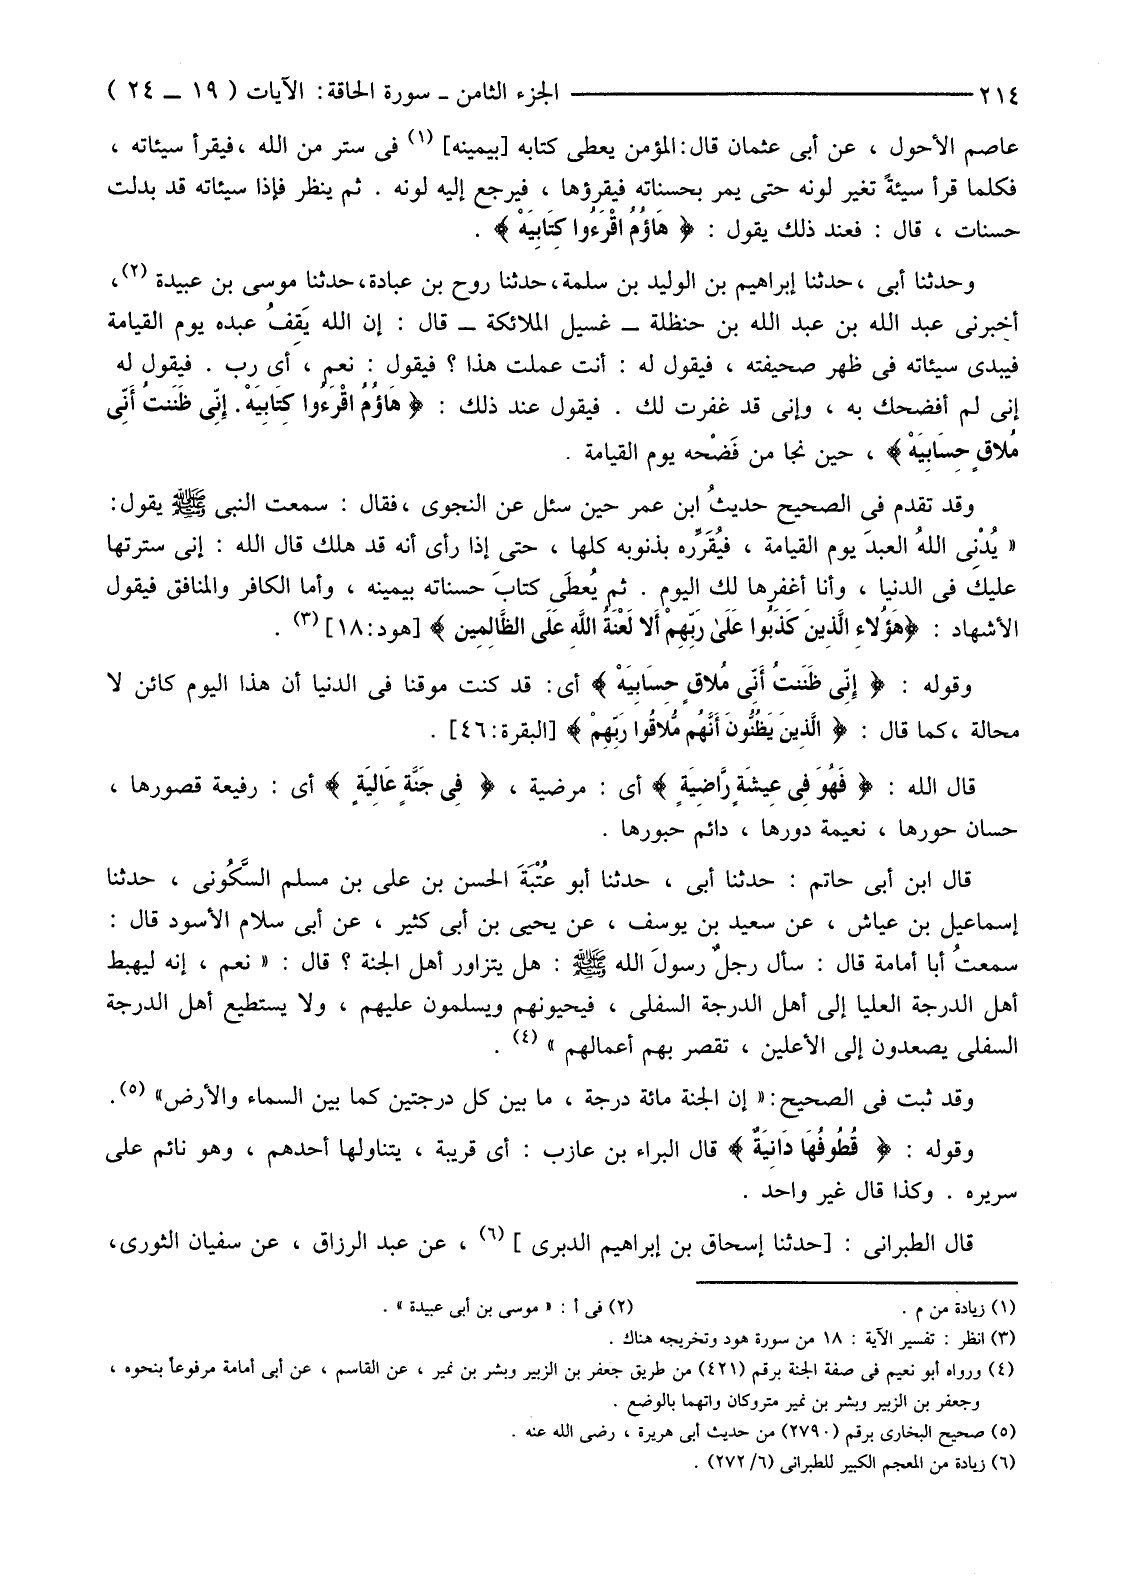 ٢١٤ ـــــــــــــــــ الجزء الثامن ـ سورة الحاقة: الآيات ( ١٩ ـ ٢٤ )
عاصم الأحول ، عن أبى عثمان قال:المؤمن يعطى كتابه [بيمينه] (١) فى ستر من الله ،فيقرأ سيئاته ،
فكلما قرأ سيئةً تغير لونه حتى يمر بحسناته فيقرؤها ، فيرجع إليه لونه . ثم ينظر فإذا سيئاته قد بدلت
حسنات ، قال : فعند ذلك يقول : ﴿ هَاؤُمُ اقْرَءُوا كِتَابِيَهْ ﴾ .
وحدثنا أبى ،حدثنا إبراهيم بن الوليد بن سلمة،حدثنا روح بن عبادة،حدثنا موسى بن عبيدة (٢)،
أخبرنى عبد الله بن عبد الله بن حنظلة ـ غسيل الملائكة ـ قال : إن الله يَقِفُ عبده يوم القيامة
فيبدى سيئاته فى ظهر صحيفته ، فيقول له : أنت عملت هذا ؟ فيقول : نعم ، أى رب . فيقول له
إنى لم أفضحك به ، وإنى قد غفرت لك . فيقول عند ذلك : ﴿ هَاؤُمُ اقْرَءُوا كِتَابِيَهْ. إِنِّى ظَنَنتُ أَنِّى
مُلاقٍ حِسَابِيَهْ ﴾ ، حين نجا من فَضْحه يوم القيامة .
وقد تقدم فى الصحيح حديثُ ابن عمر حين سئل عن النجوى ،فقال : سمعت النبى ﷺ يقول:
« يُدْنِى اللهُ العبدَ يوم القيامة ، فيُقَرِّره بذنوبه كلها ، حتى إذا رأى أنه قد هلك قال الله : إنى سترتها
عليك فى الدنيا ، وأنا أغفرها لك اليوم . ثم يُعطَى كتابَ حسناته بيمينه ، وأما الكافر والمنافق فيقول
الأشهاد : ﴿هَؤُلاءِ الَّذِينَ كَذَبُوا عَلَىٰ رَبِّهِمْ أَلا لَعْنَةُ اللَّهِ عَلَى الظَّالِمِين ﴾ [هود:١٨] (٣) .
وقوله : ﴿ إِنِّى ظَنَنتُ أَنِّى مُلاقٍ حِسَابِيَهْ ﴾ أى: قد كنت موقنا فى الدنيا أن هذا اليوم كائن لا
محالة ،كما قال : ﴿ الَّذِينَ يَظُنُّونَ أَنَّهُم مُّلاقُوا رَبِّهِمْ ﴾ [البقرة:٤٦] .
قال الله : ﴿ فَهُوَ فِى عِيشَةٍ رَّاضِيَةٍ ﴾ أى : مرضية ، ﴿ فِى جَنَّةٍ عَالِيَةٍ ﴾ أى : رفيعة قصورها ،
حسان حورها ، نعيمة دورها ، دائم حبورها .
قال ابن أبى حاتم : حدثنا أبى ، حدثنا أبو عُتْبَةَ الحسن بن على بن مسلم السَّكُونى ، حدثنا
إسماعيل بن عياش ، عن سعيد بن يوسف ، عن يحيى بن أبى كثير ، عن أبى سلام الأسود قال :
سمعتُ أبا أمامة قال : سأل رجلٌ رسولَ الله ﷺ : هل يتزاور أهل الجنة ؟ قال : « نعم ، إنه ليهبط
أهل الدرجة العليا إلى أهل الدرجة السفلى ، فيحيونهم ويسلمون عليهم ، ولا يستطيع أهل الدرجة
السفلى يصعدون إلى الأعلين ، تقصر بهم أعمالهم » (٤) .
وقد ثبت فى الصحيح:« إن الجنة مائة درجة ، ما بين كل درجتين كما بين السماء والأرض» (٥).
وقوله : ﴿ قُطُوفُهَا دَانِيَةٌ ﴾ قال البراء بن عازب : أى قريبة ، يتناولها أحدهم ، وهو نائم على
سريره . وكذا قال غير واحد .
قال الطبرانى : [حدثنا إسحاق بن إبراهيم الدبرى ] (٦) ، عن عبد الرزاق ، عن سفيان الثورى،
(١) زيادة من م . (٢) فى أ : « موسى بن أبى عبيدة » .
(٣) انظر : تفسير الآية : ١٨ من سورة هود وتخريجه هناك .
(٤) ورواه أبو نعيم فى صفة الجنة برقم (٤٢١) من طريق جعفر بن الزبير وبشر بن نمير ، عن القاسم ، عن أبى أمامة مرفوعاً بنحوه ،
وجعفر بن الزبير وبشر بن نمير متروكان واتهما بالوضع .
(٥) صحيح البخارى برقم (٢٧٩٠) من حديث أبى هريرة ، رضى الله عنه .
(٦) زيادة من المعجم الكبير للطبرانى (٦/ ٢٧٢) .